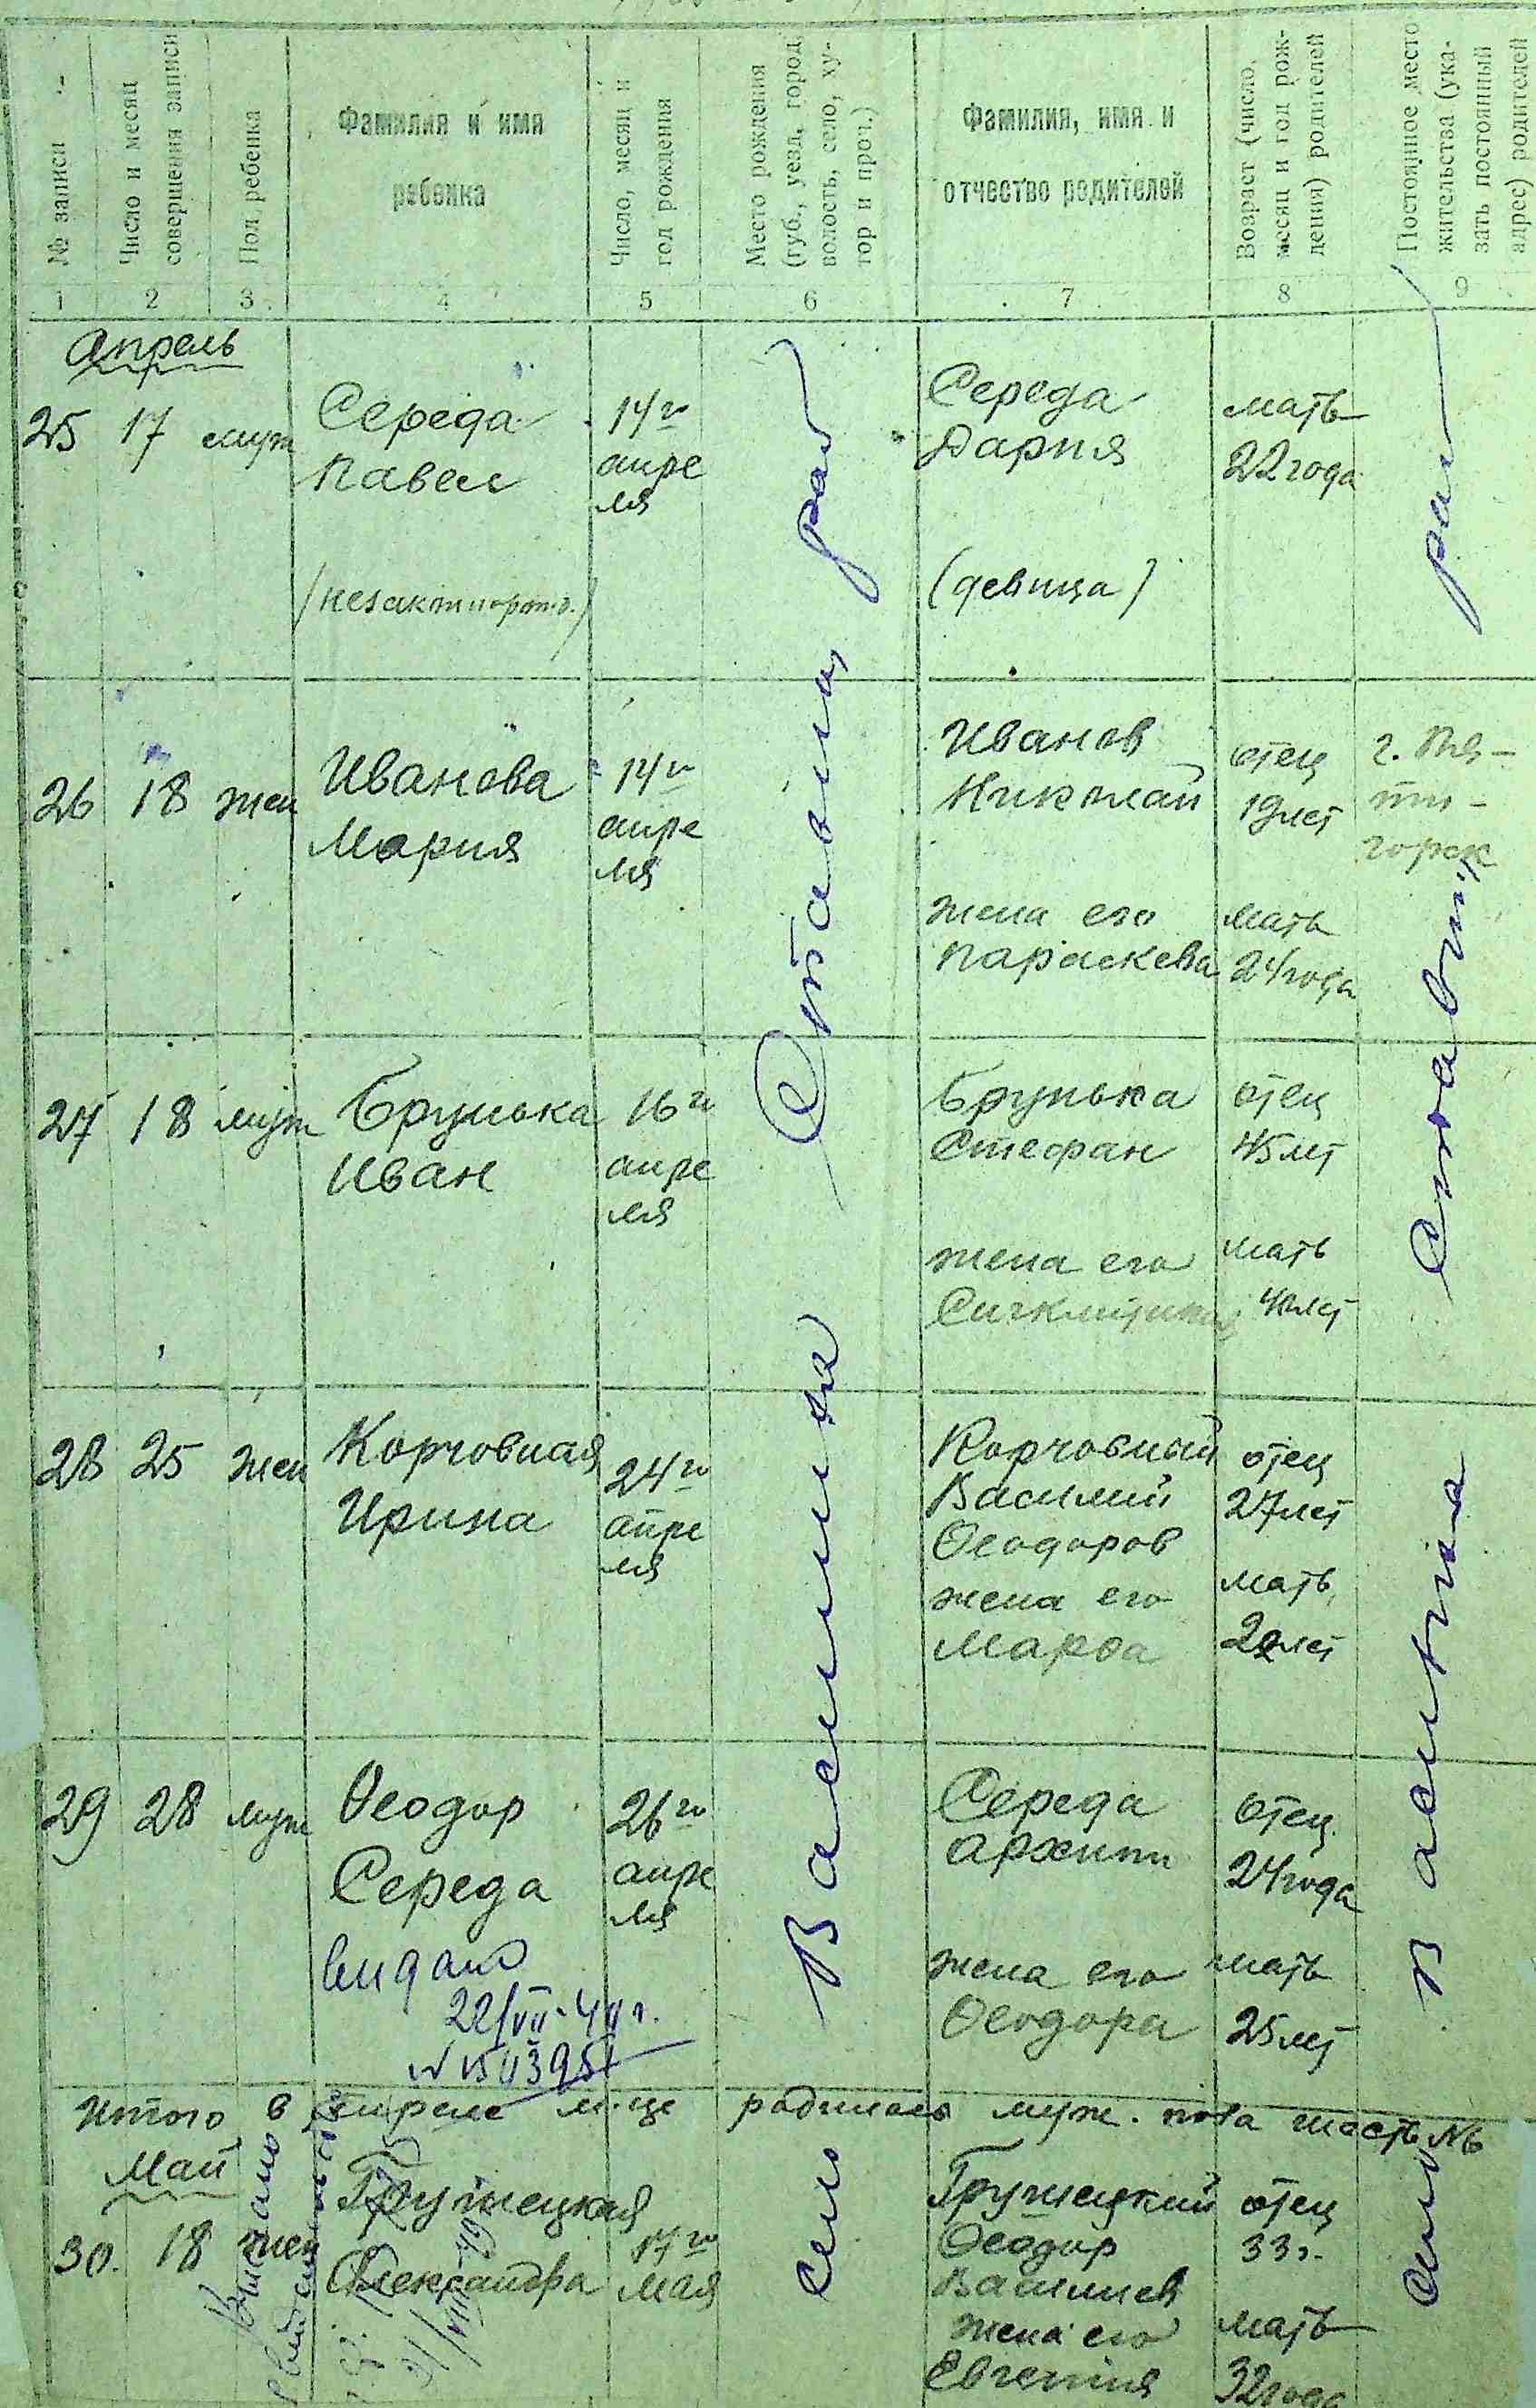 № записи
Число и месяц
совершения записи
Пол ребенка
Фамилия и имя
ребенка
Число, месяц и
год рождения
Место рождения
(губ., уезд, город,
волость, село, ху-
тор и проч.)
Фамилия, имя и
отчество родителей
Возраст (число,
месяц и год рож-
дения) родителей
Постоянное место
жительства (ука-
зать постоянный
адрес) родителей
1 2 3 4 5 6 7 8 9
Апрель
25 17 муж
Середа
Павел
14го
апре
ля
Середа
Дария
(девица)
мать
22 года
26 18 жен
Иванова
Мария
14го
апре
ля
Иванов
Николай
жена его
Параскева
отец
19 лет
мать
24 года
г. Пя-
ти-
горск
27 18 муж
Брунька
Иван
16го
апре
ля
Брунька
Стефан
жена его
отец
45 лет
мать
40 лет
28 25 жен
Корчовная
Ирина
24го
апре
ля
Корчовный
Василий
Ѳеодоров
жена его
Марѳа
отец
27 лет
мать
лет
29 28 муж
Ѳеодор
Середа
видано
26го
апре
ля
Середа
Архип
жена его
Ѳеодора
отец
24 года
мать
25 лет
село Василивка Ставищ. рай
село Василивка Ставищ. рай
Итого в апреле м-це родилось муж. пола шесть №6
Май
30. 18 жен
Гружецкая
Александра
17го
мая
Гружецкий
Ѳеодор
Васильев
жена его
Евгения
отец
33 г.
мать
32 года